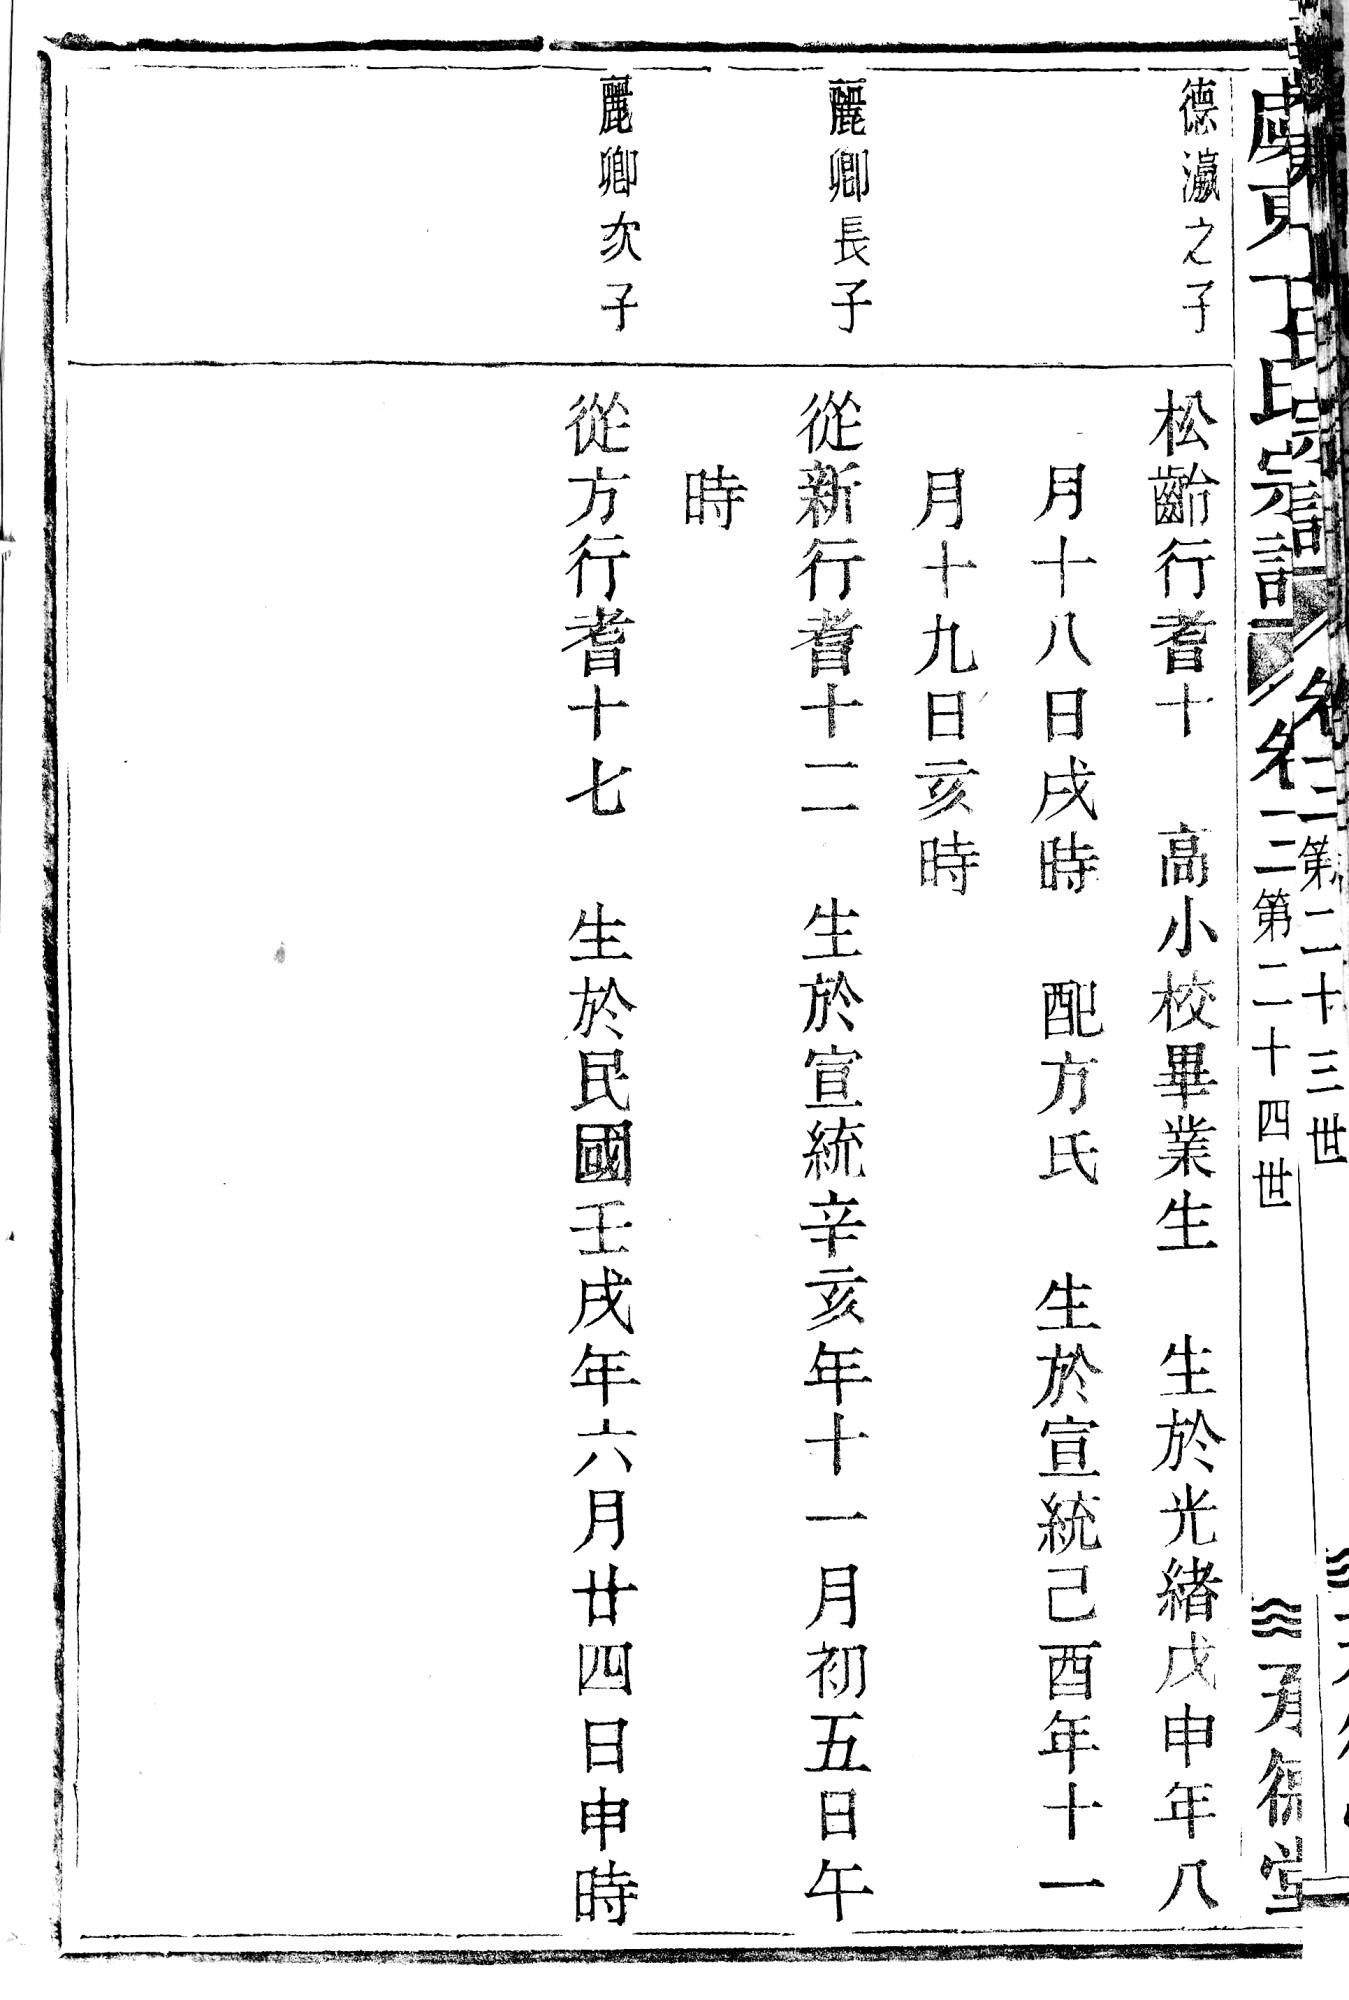 虞東丁氏宗譜 卷二第二十四世 承德堂
卷二第二十三世
德瀛之子
松齡行耆十 高小校畢業生 生於光緒戊申年八
月十八日戌時 配方氏 生於宣統己酉年十一
月十九日亥時
麗卿長子
從新行耆十二 生於宣統辛亥年十一月初五日午
時
麗卿次子
從方行耆十七 生於民國壬戌年六月廿四日申時